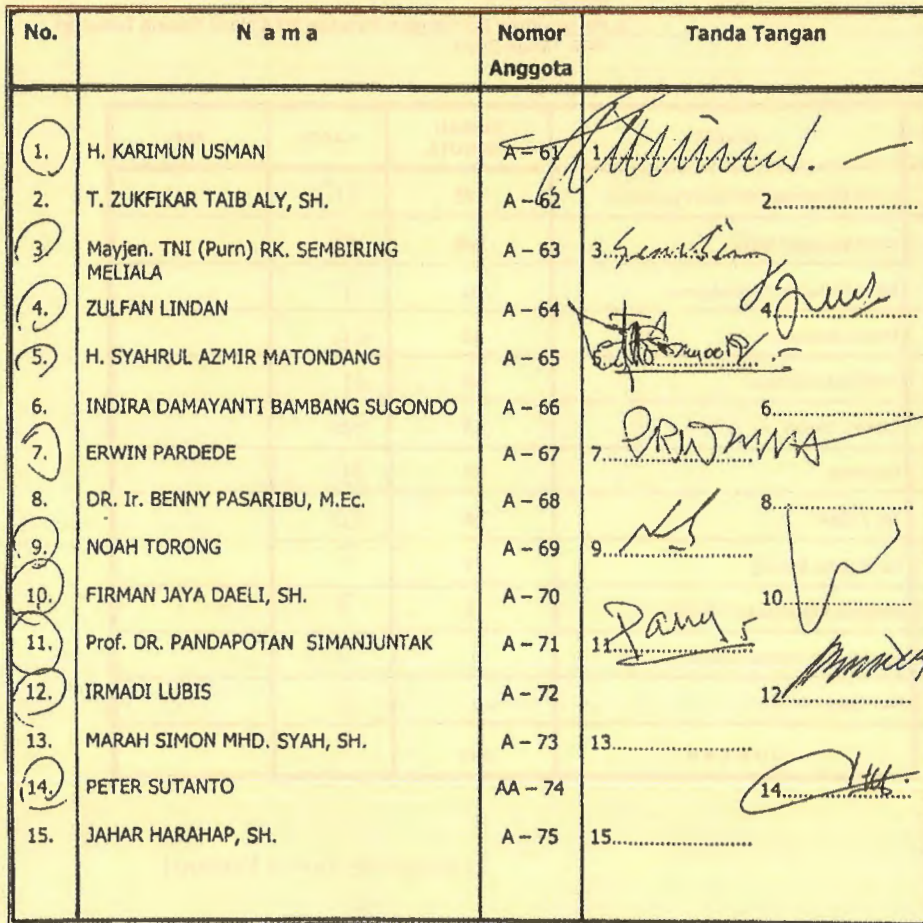 No. N a m a Nomor Anggota Tanda Tangan
1. H. KARIMUN USMAN A – 61 1.
2. T. ZUKFIKAR TAIB ALY, SH. A – 62 2.....................
3. Mayjen. TNI (Purn) RK. SEMBIRING A – 63 3. Sembiring
MELIALA
4. ZULFAN LINDAN A – 64 4.
5. H. SYAHRUL AZMIR MATONDANG A – 65 5.
6. INDIRA DAMAYANTI BAMBANG SUGONDO A – 66 6.....................
7. ERWIN PARDEDE A – 67 7.
8. DR. Ir. BENNY PASARIBU, M.Ec. A – 68 8.....................
9. NOAH TORONG A – 69 9.
10. FIRMAN JAYA DAELI, SH. A – 70 10.
11. Prof. DR. PANDAPOTAN SIMANJUNTAK A – 71 11.
12. IRMADI LUBIS A – 72 12.
13. MARAH SIMON MHD. SYAH, SH. A – 73 13.....................
14. PETER SUTANTO AA – 74 14.
15. JAHAR HARAHAP, SH. A – 75 15.....................